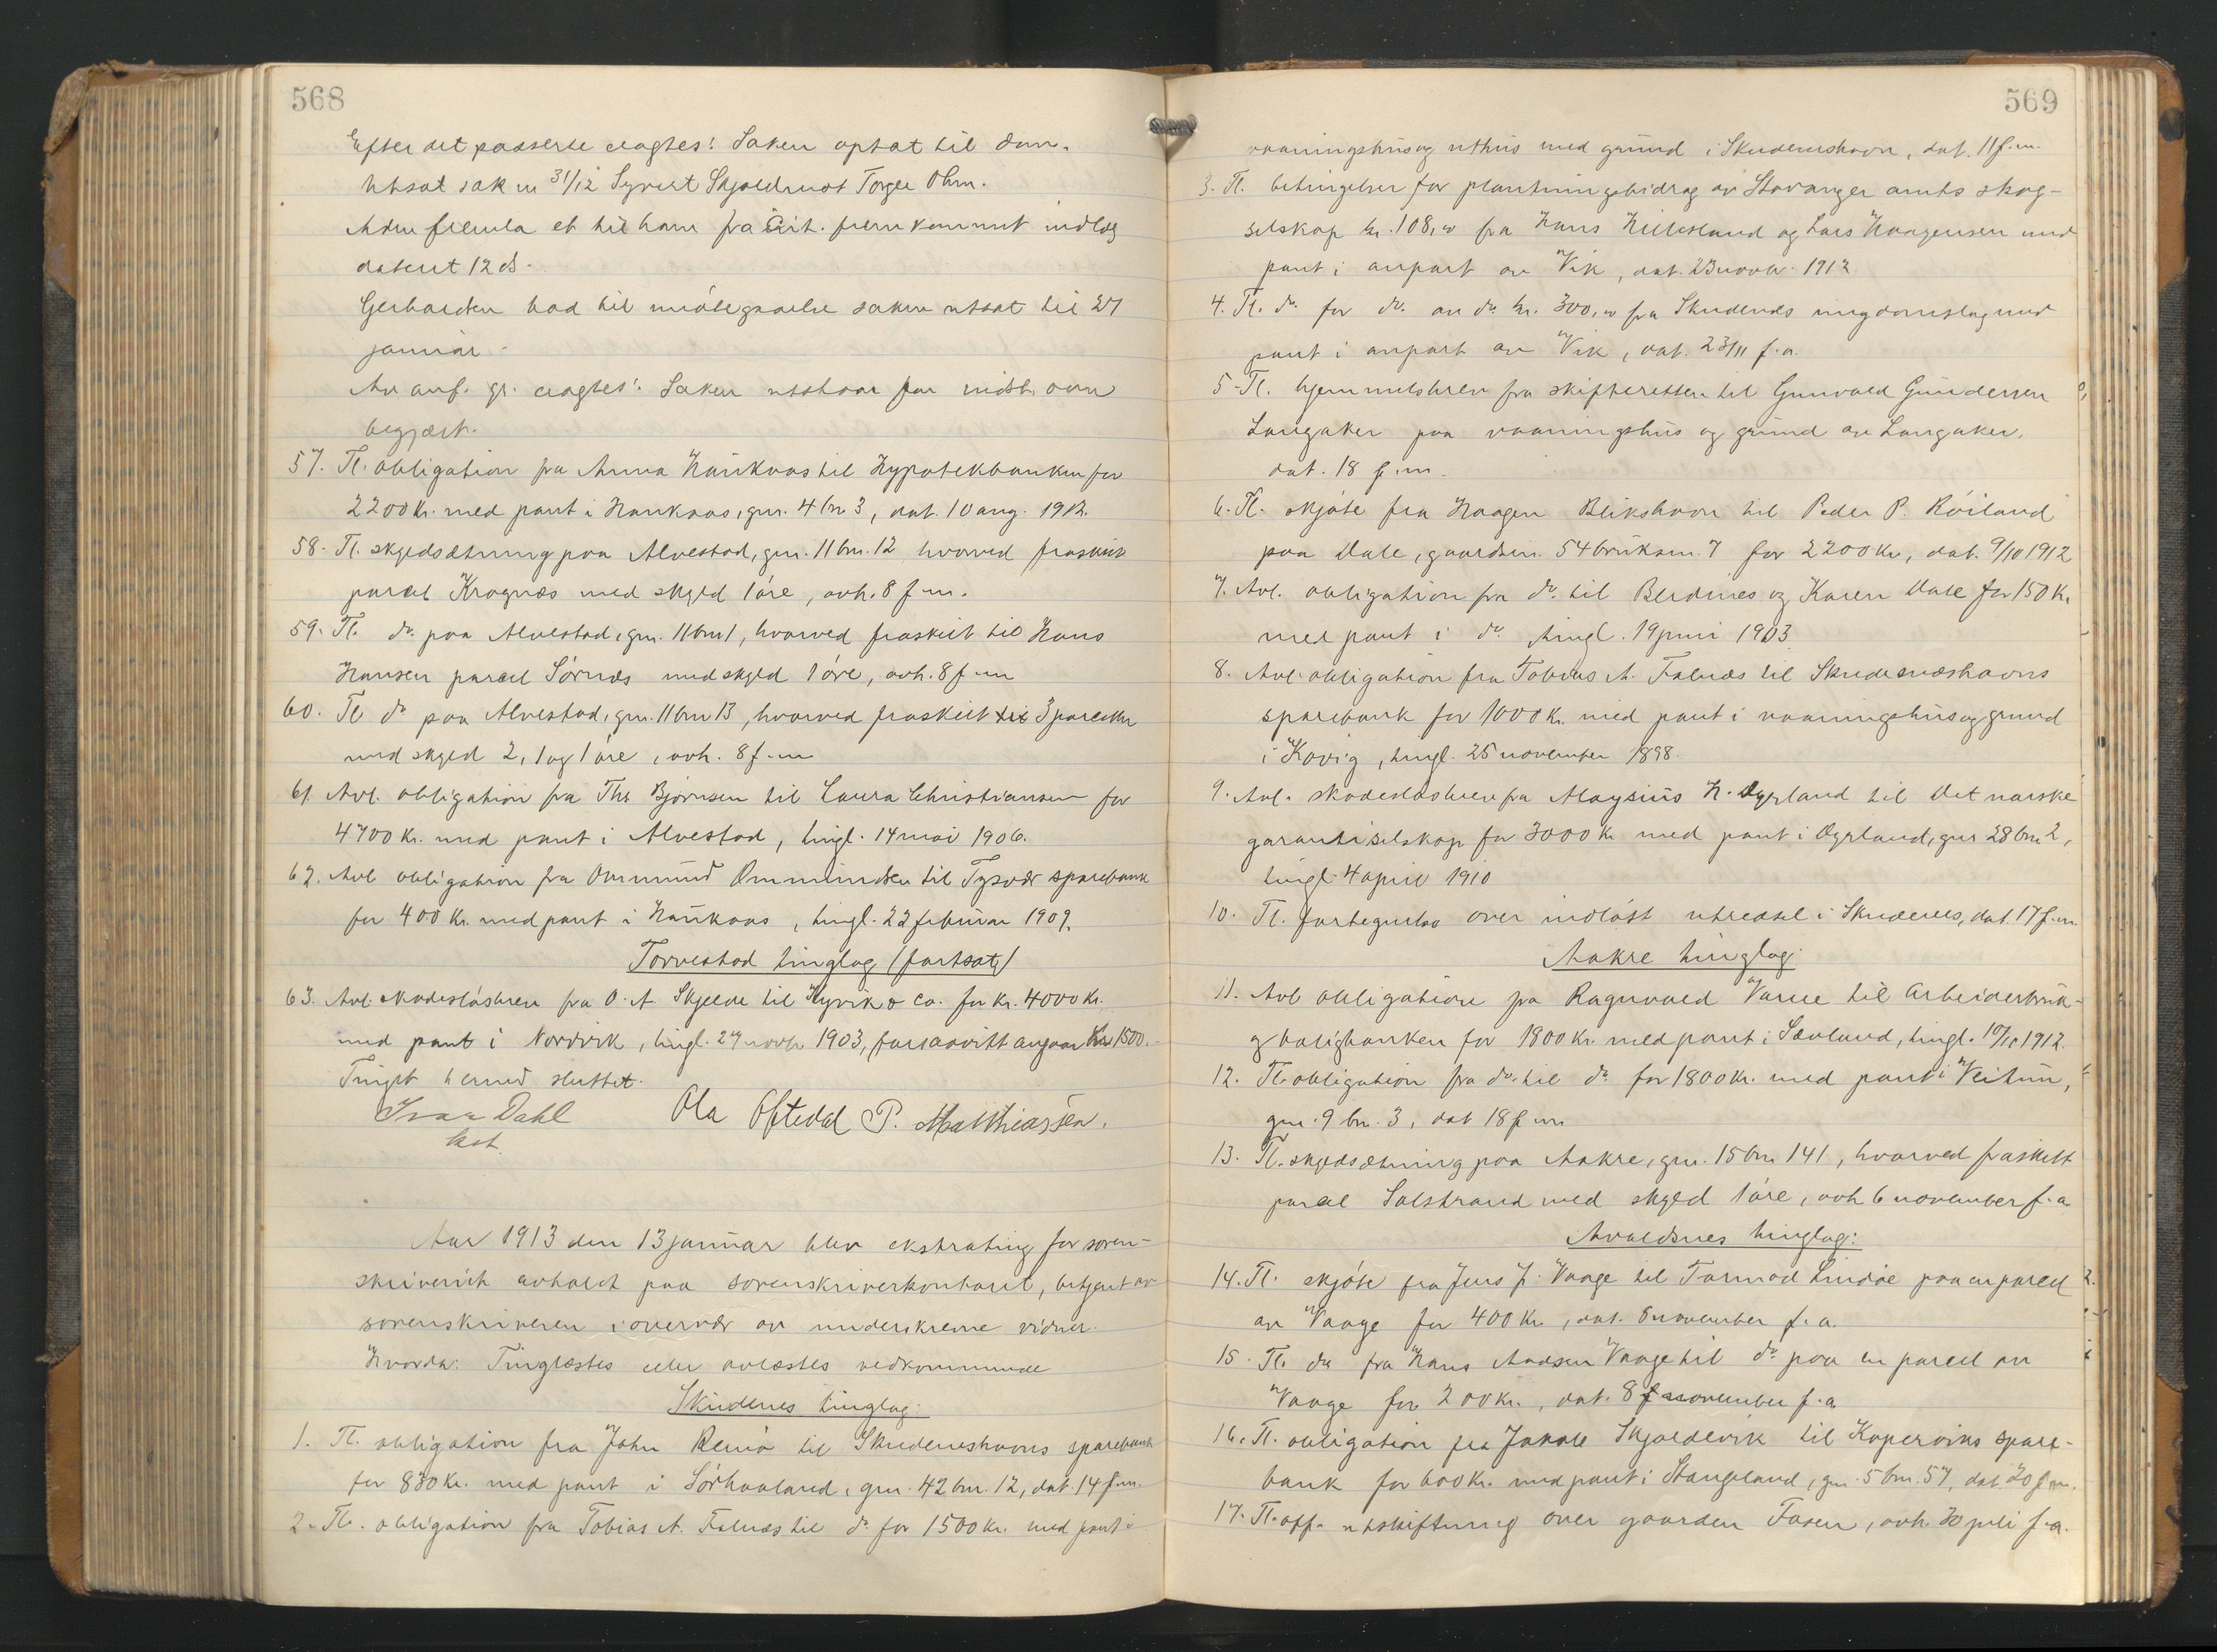 568
Efter det passerte eragtes: Saken optat til dom.
Utsat sak nr 31/12 Syvert Skjoldmot Torger Ohm.
et til ham fra Cit. fremkommet indlæg
datert 12 ds.
Gerhardsen bad til imøtegaaelse saken utsat til 27
januar.
Av anf. gr. eragtes: Saken utstaar som
begjært.
57. Tl. obligation fra Anna Haukaas til Hypotekbanken for
2200 Kr. med pant i Haukaas, gnr. 4 bn 3, dat. 10 aug. 1912.
58. Tl. skyldsætning paa Alvestad, gnr. 11 bnr. 12 hvorved fraskilt
parcel Krognæs med skyld 1 øre, avh. 8 f.m.
59. Tl. do paa Alvestad, gnr. 11 bnr 1, hvorved fraskilt til Hans
Hansen parcel Sørnæs med skyld 1 øre, avh. 8 f.m
60. Tl do paa Alvestad, gnr. 11 bnr 13, hvorved fraskilt 3 parceller
med skyld 2, 1 og 1 øre, avh. 8 f.m
61. Avl. obligation fra Ths Bjørnsen til Laura Christiansen for
4700 Kr. med pant i Alvestad, tingl. 14 mai 1906.
62. Avl obligation fra Ommund Ommundsen til Tysvær sparebank
for 400 Kr. med pant i Haukaas, tingl. 22 februar 1909.
Torvestad tinglag (fortsat)
63. Avl. skadesløsbrev fra O. A. Skjelde til Hyrik & Co. for kr. 4000 Kr.
med pant i Nordvik, tingl. 27 novb 1903, forsaavitt angaar Kr 1500.
Tinget hermed sluttet.
Ivar Dahl Ola Oftedal P. Matthiassen.
kst.
Aar 1913 den 13 januar blev ekstrating for soren-
skriveriet avholdt paa sorenskriverkontoret, betjent av
sorenskriveren i overvær av underskrevne vidner.
Hvorda: Tinglæstes eller avlæstes vedkommende
Skudenes tinglag:
1. Tl. obligation fra John Reinø til Skudeneshavns sparebank
for 830 Kr. med pant i Sørhaaland, gnr. 42 bnr. 12, dat. 14 f.m.
2. Tl. obligation fra Tobias A. Falnæs til do for 1500 Kr. med pant i
569
vaaningshus og uthus med grund i Skudeneshavn, dat. 11 f.m.
3. Tl. betingelser for plantningsbidrag av Stavanger amts skog-
selskap kr. 108,00 fra Hans Hillesland og Lars Haagensen med
pant i anpart av Vik, dat. 23 novbr 1912
4. Tl. do for do. av do kr. 300,00 fra Skudenes ungdomslag med
pant i anpart av Vik, dat. 23/11 f.a.
5. Tl. hjemmelsbrev fra skifteretten til Gunvald Gundersen
Langaker paa vaaningshus og grund av Langaker,
dat. 18 f.m.
6. Tl. skjøte fra Haagen Blikshavn til Peder P. Røiland
paa Dale, gaardsnr. 54 bruksnr. 7 for 2200 Kr, dat. 9/10 1912
7. Avl. obligation fra do til Berdines og Karen Dale for 150 Kr
med pant i do tingl. 19 juni 1903
8. Avl. obligation fra Tobias A. Falnæs til Skudesnæshavns
sparebank for 1000 Kr. med pant i vaaningshus og grund
i Kovig, tingl. 25 november 1898.
9. Avl. skadesløsbrev fra Aloysius H. Dyrland til Det norske
garantiselskap for 3000 Kr med pant i Dyrland, gnr 28 bnr 2,
tingl. 4 april 1910
10. Tl. fortegnelse over indløst utredsel i Skudenes, dat. 17 f.m.
Aakre tinglag
11. Avl obligation fra Ragnvald Varne til Arbeiderbruk-
og boligbanken for 1800 Kr. med pant i Sævland, tingl. 10/10 1912.
12. Tl. obligation fra do. til do for 1800 Kr. med pant i Veitun,
gnr. 9 bn. 3, dat 18 f.m
13. Tl. skyldsætning paa Aakre, gnr. 15 bnr 141, hvorved fraskilt
parcel Solstrand med skyld 1 øre, avh 6 november f.a
Avaldsnes tinglag:
14. Tl. skjøte fra Jens J. Vaage til Tormod Lindøe paa en parcel
av Vaage for 400 Kr, dat. 8 november f.a.
15. Tl. do fra Hans Aadsen Vaage til do paa en parcel av
Vaage for 200 Kr., dat. 8 november f.a
16. Tl. obligation fra Jakob Skjoldevik til Kopervik spare-
bank for 600 Kr. med pant i Stangeland, gnr. 5 bnr. 57, dat 20 f.m.
17. Tl. off. utskiftning over gaarden Fosen, avh. 30 juli f.a.